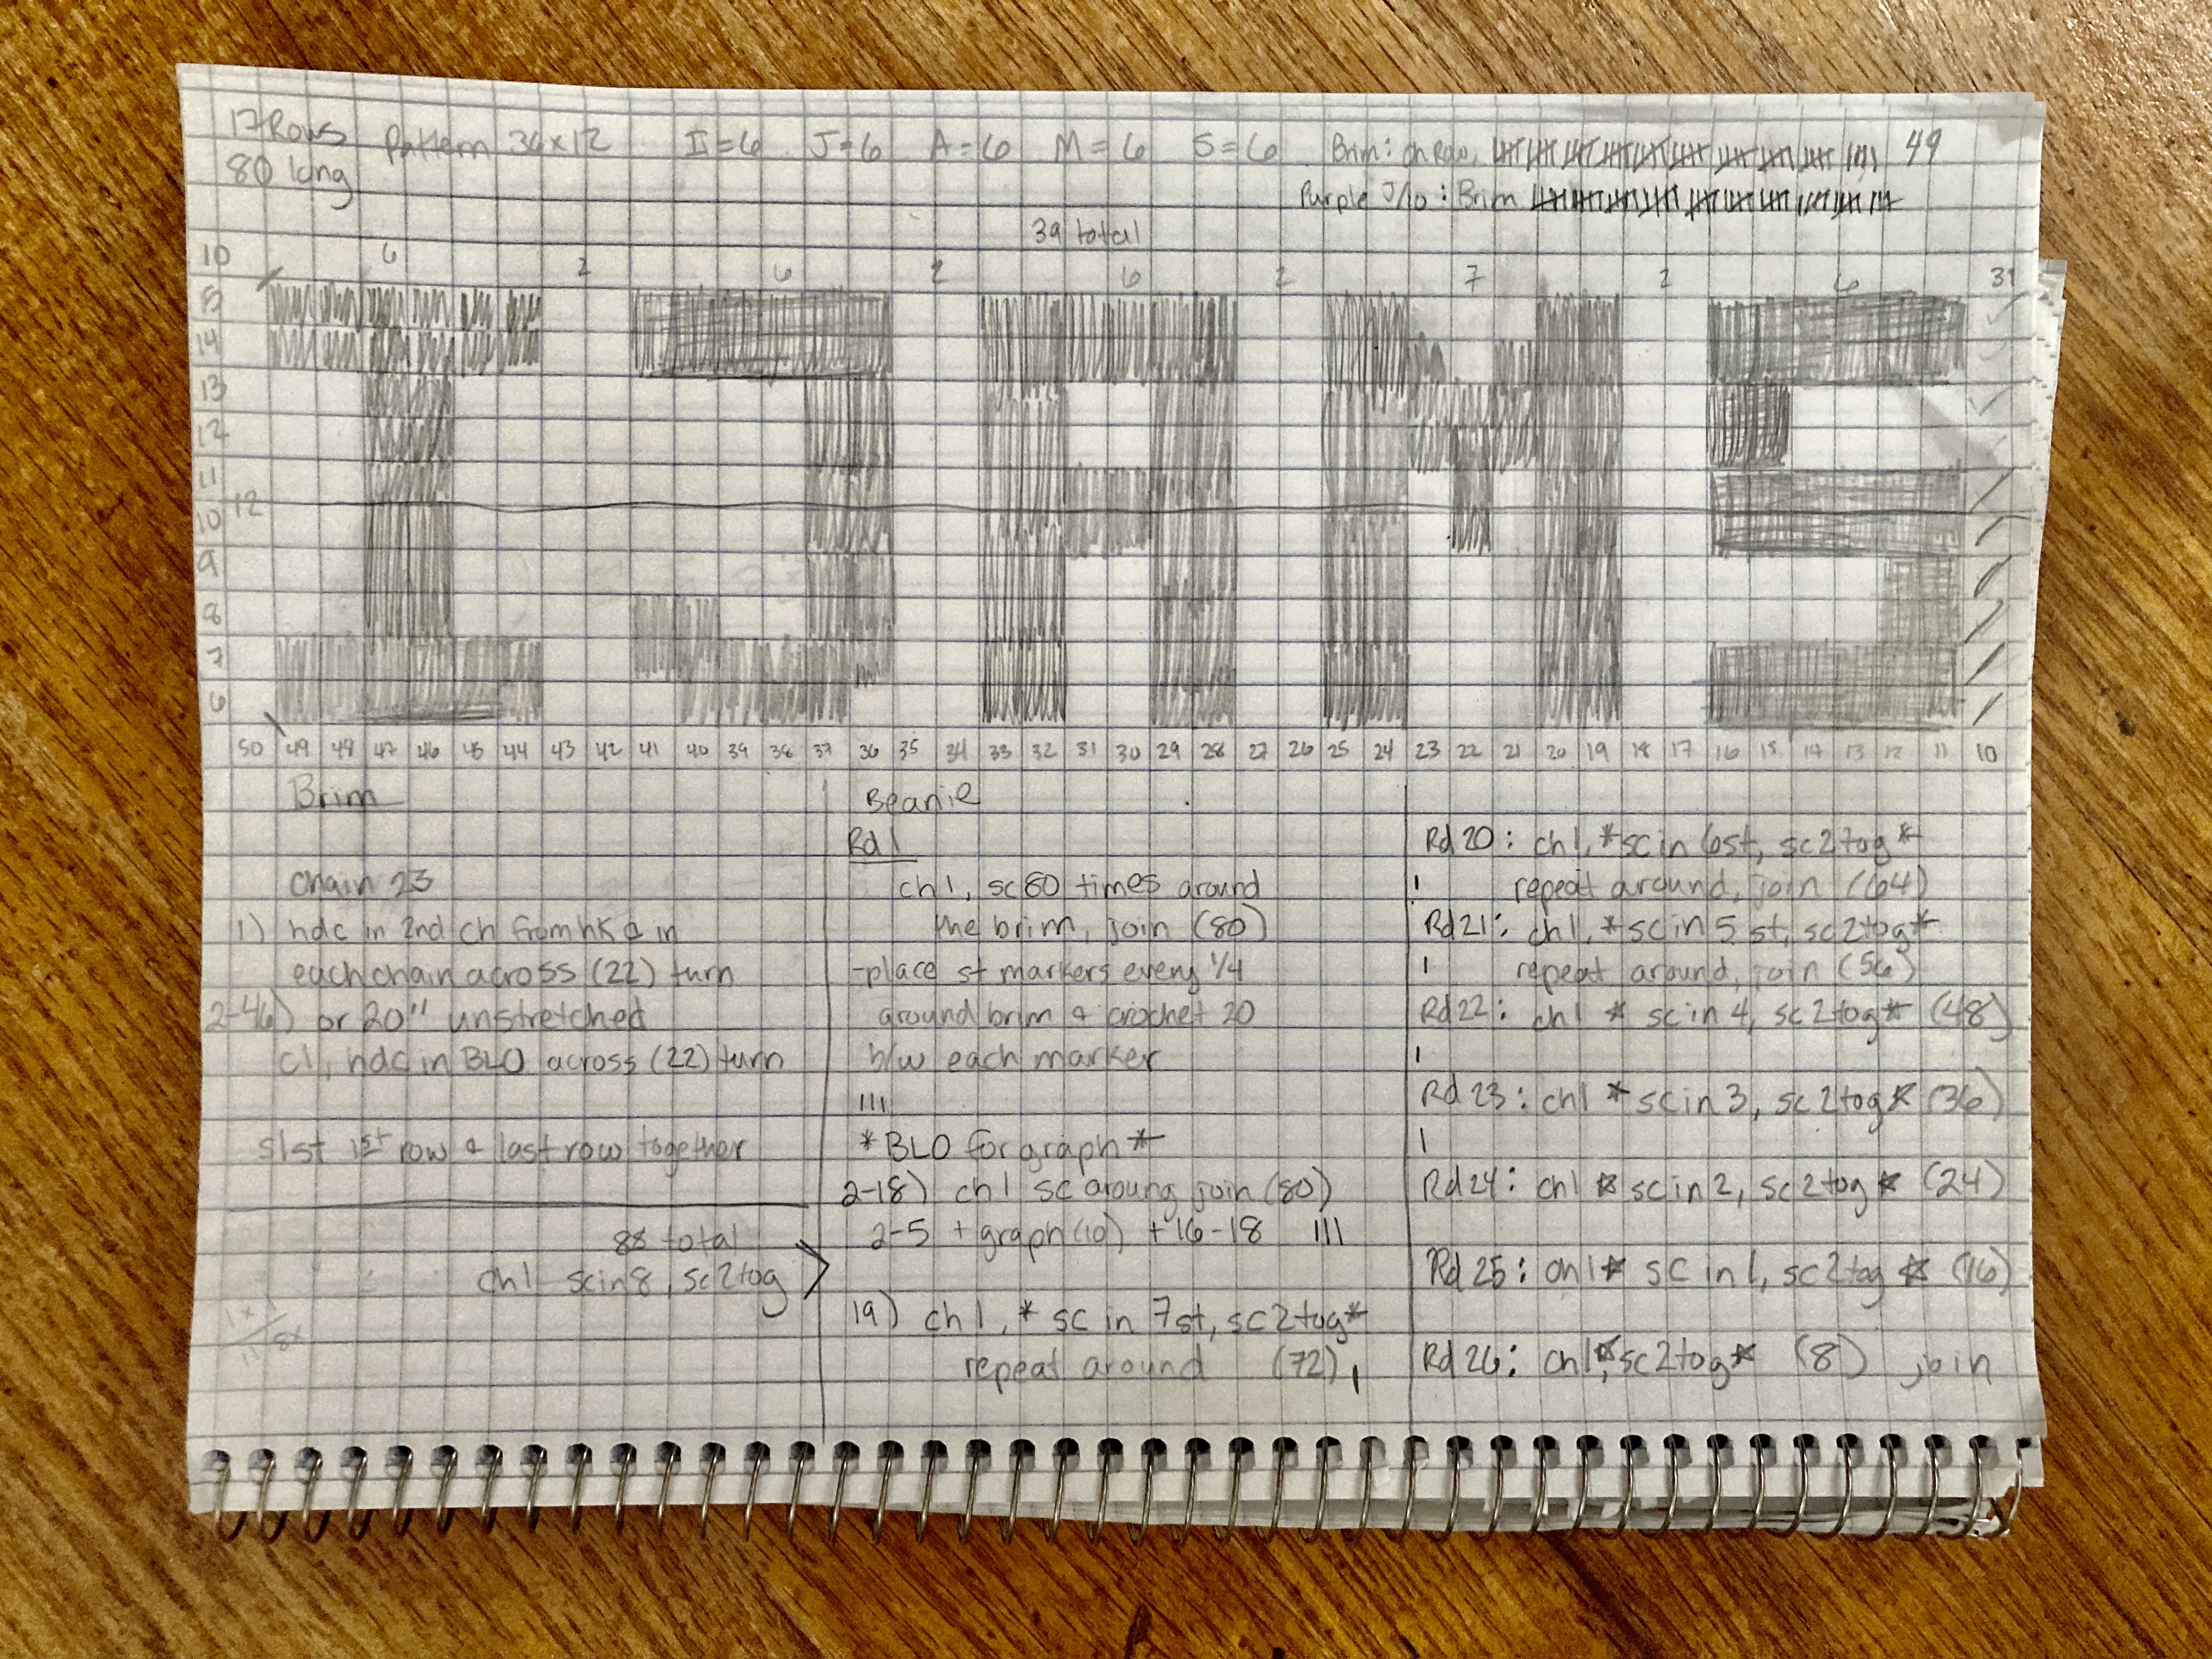 17 Rows Pattern 36x12 I=6 J=6 A=6 M=6 S=6 Brim: ch Row, 49
80 long
Purple J/10: Brim
39 total
10 6 2 6 2 6 2 7 2 6 31
15
14
13
12
11
10 12
9
8
7
6
50 49 48 47 46 45 44 43 42 41 40 39 38 37 36 35 34 33 32 31 30 29 28 27 26 25 24 23 22 21 20 19 18 17 16 15 14 13 12 11 10
Brim
Chain 23
1) hdc in 2nd ch from hk & in
each chain across (22) turn
2-46) or 20" unstretched
c1, hdc in BLO across (22) turn
slst 1st row & last row together
88 total
ch1 sc in 8, sc2tog >
Beanie
Rd 1
ch 1, sc 80 times around
the brim, join (80)
-place st markers every 1/4
around brim & crochet 20
b/w each marker
III
*BLO for graph*
2-18) ch 1 sc aroung join (80)
2-5 + graph (10) + 16-18 III
19) ch 1, * sc in 7st, sc2tog*
repeat around (72) I
Rd 20: ch1, *sc in 6st, sc2tog*
I repeat around, join (64)
Rd 21: ch1, *sc in 5 st, sc2tog*
I repeat around, join (56)
Rd 22: ch1 * sc in 4, sc2tog* (48)
I
Rd 23: ch1 * sc in 3, sc2tog* (36)
I
Rd 24: ch1 * sc in 2, sc2tog * (24)
Rd 25: ch1* sc in 1, sc2tog * (16)
Rd 26: ch1, *sc2tog* (8) join